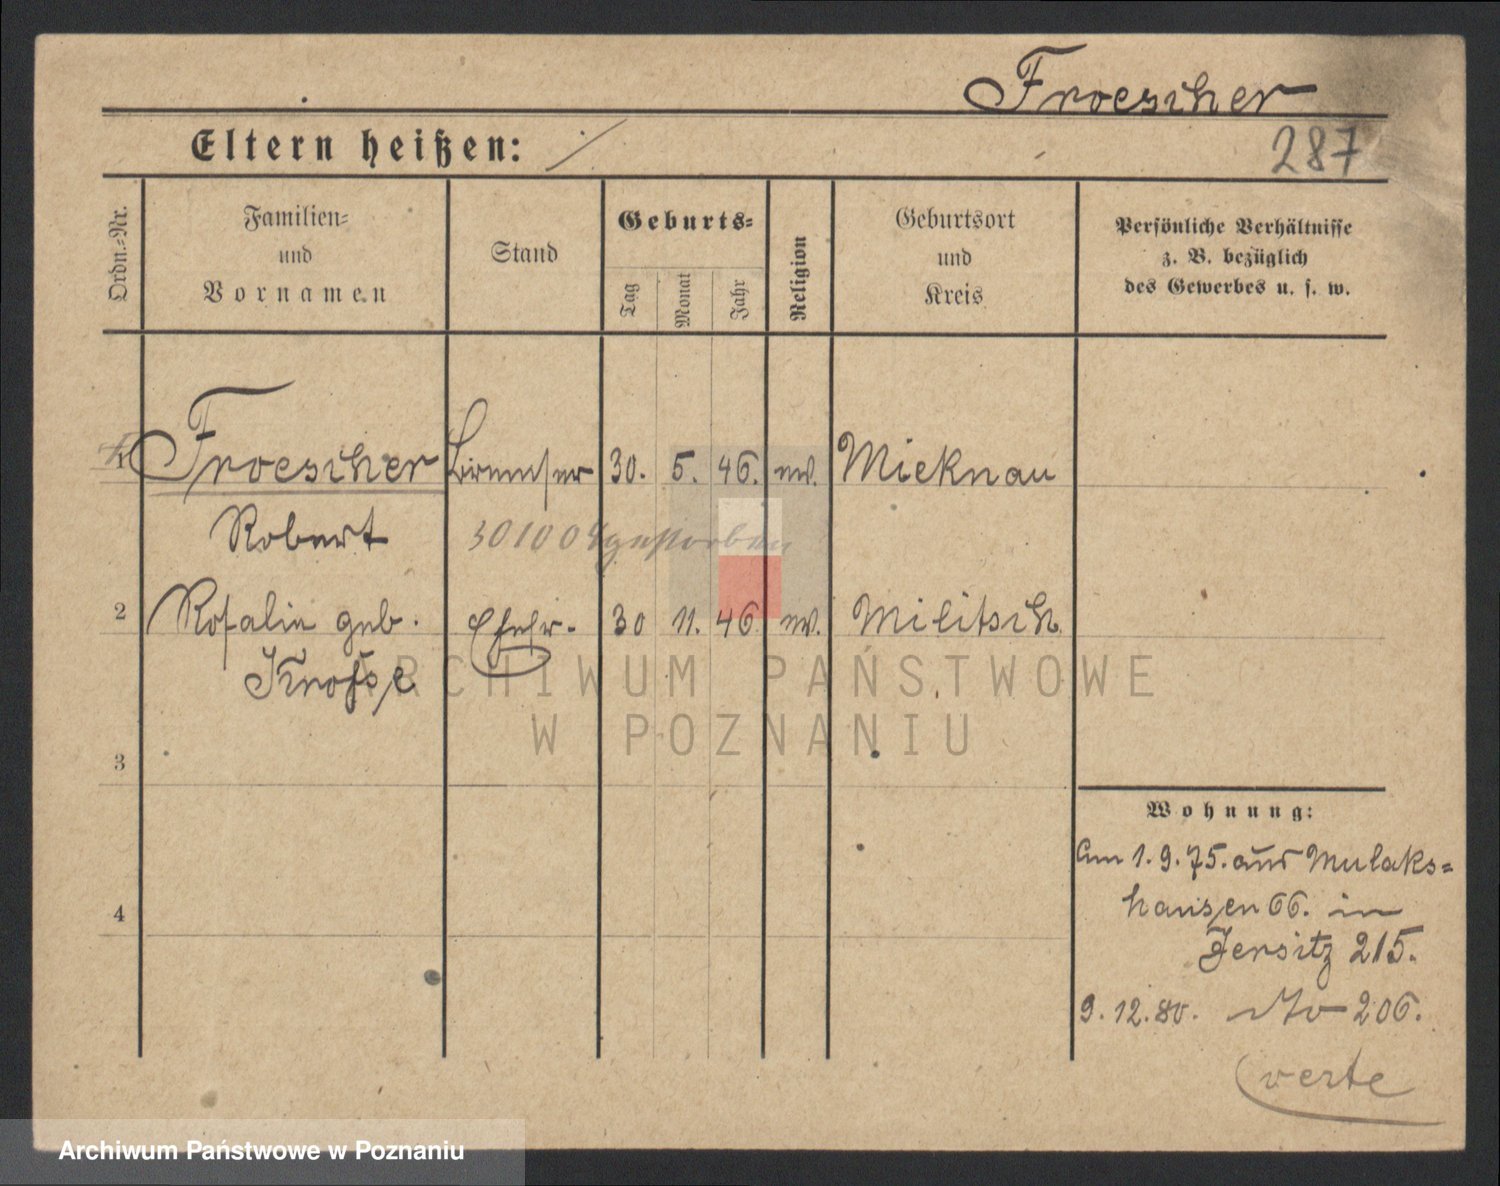 Froescher
Eltern heißen: ./.
287
Ordn.=Nr.
Familien=
und
Vornamen
Stand
Geburts=
Tag
Monat
Jahr
Religion
Geburtsort
und
Kreis
Persönliche Verhältnisse
z. B. bezüglich
des Gewerbes u. s. w.
1 Froescher Bremser 30. 5. 46. ev. Mieknau
Robert
301004 gestorben
2 Rosalie geb. Ehefr. 30 11. 46 ev. Militsch
Krosse
ARCHIWUM PAŃSTWOWE
W POZNANIU
3
4
Wohnung:
Am 1. 9. 75. aus Mulaks=
hausen 66. in
Jersitz 215.
9. 12. 80. No 206.
verte
Archiwum Państwowe w Poznaniu